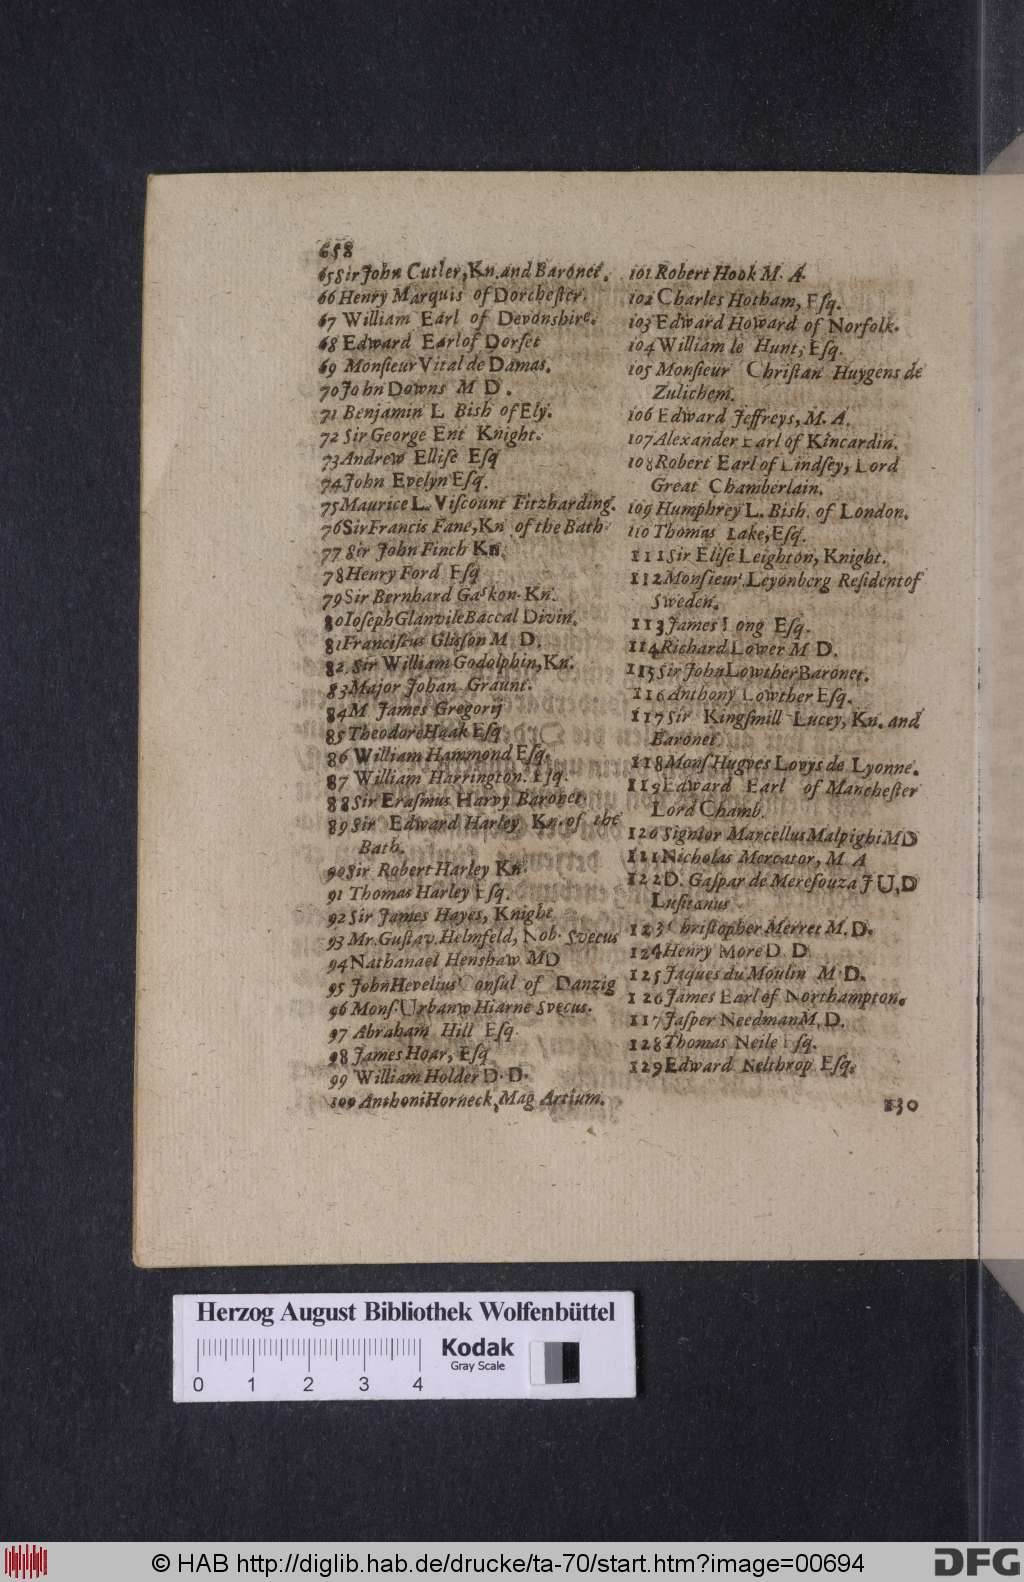 658
65 Sir John Cutler, Kn. and Baronet.
66 Henry Marquis of Dorcheſter.
67 William Earl of Devonshire.
68 Edward Earl of Dorſet
69 Monſieur Vital de Damas.
70 John Downs M D.
71 Benjamin L Bish of Ely.
72 Sir George Ent Knight.
73 Andrew Elliſe Eſq
74 John Evelyn Eſq.
75 Maurice L. Viſcount Fitzharding.
76 Sir Francis Fane, Kn of the Bath
77 Sir John Finch Kn.
78 Henry Ford Eſq
79 Sir Bernhard Gaskon. Kn.
80 Ioſeph Glanvile Baccal Divin.
81 Franciſcus Gliſſon M D.
82 Sir William Godolphin, Kn.
83 Major Johan Graunt.
84 M James Gregorij
85 Theodore Haak Eſq
86 William Hammond Eſq.
87 William Harrington. Eſq.
88 Sir Eraſmus Harvy Baronet
89 Sir Edward Harley Kn. of the
Bath.
90 Sir Robert Harley Kn.
91 Thomas Harley Eſq.
92 Sir James Hayes, Knight
93 Mr. Guſtav. Helmfeld, Nob. Svecus
94 Nathanael Henshaw MD
95 John Hevelius Conſul of Danzig
96 Monſ. Urbanw Hiarne Svecus.
97 Abraham Hill Eſq.
98 James Hoar, Eſq
99 William Holder D. D.
100 Anthoni Horneck, Mag Artium.
101 Robert Hook M. A.
102 Charles Hotham, Eſq.
103 Edward Howard of Norfolk.
104 William le Hunt, Eſq.
105 Monſieur Chriſtan Huygens de
Zulichem.
106 Edward Jeffreys, M. A.
107 Alexander Earl of Kincardin.
108 Robert Earl of Lindſey, Lord
Great Chamberlain.
109 Humphrey L. Bish. of London.
110 Thomas Lake, Eſq.
111 Sir Eliſe Leighton, Knight.
112 Monſieur Leyonberg Reſident of
Sweden.
113 James Long Eſq.
114 Richard Lower M D.
115 Sir John Lowther Baronet.
116 Anthony Lowther Eſq.
117 Sir Kingſmill Lucey, Kn. and
Baronet
118 Monſ Hugves Lovys de Lyonne.
119 Edward Earl of Mancheſter
Lord Chamb.
120 Signior Marcellus Malpighi. MD
121 Nicholas Mercator, M A
122 D. Gaſpar de Mereſouza J U, D
Luſitanus
123 Chriſtopher Merret M. D.
124 Henry More D D
125 Jaques du Moulin M. D.
126 James Earl of Northampton.
117 Jaſper Needman M. D.
128 Thomas Neile Eſq.
129 Edward Nelthrop Eſq.
130
Herzog August Bibliothek Wolfenbüttel
Kodak
Gray Scale
0 1 2 3 4
© HAB http://diglib.hab.de/drucke/ta-70/start.htm?image=00694
DFG